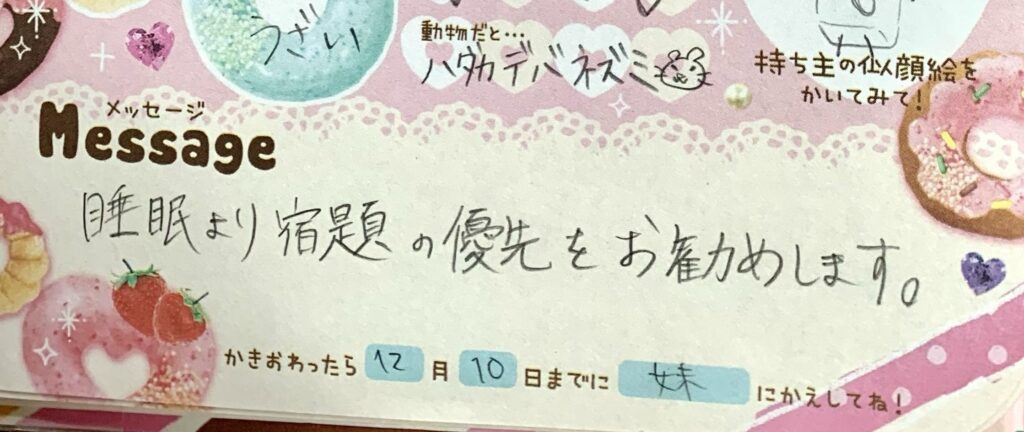 うざい
動物だと…
ハダカデバネズミ
持ち主の似顔絵を
かいてみて!
メッセージ
Message
睡眠より宿題の優先をお勧めします。
かきおわったら 12 月 10 日までに 妹 にかえしてね!